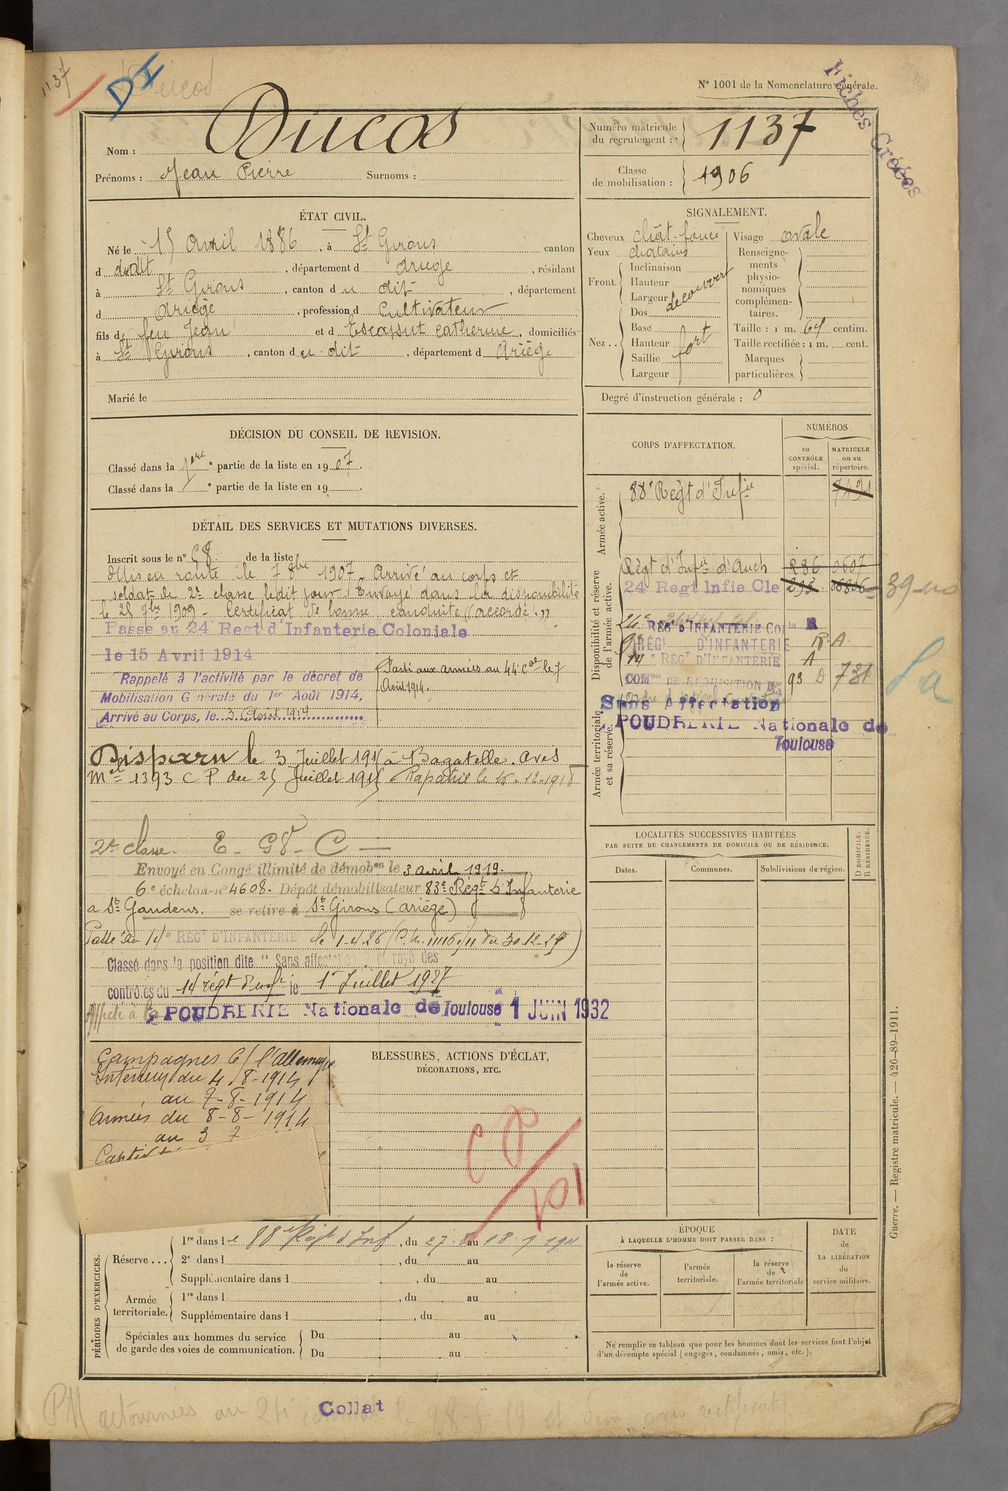 1137
DI
Ducos
N° 1001 de la Nomenclature générale.
Fiches Créées
Nom : Ducos
Prénoms : Jean Pierre Surnoms :
Numéro matricule du recrutement : 1137
Classe de mobilisation : 1906
ÉTAT CIVIL.
Né le 15 avril 1886, à St Girons canton
d dudit, département d ariège, résidant
à St Girons, canton du dit, département
d ariège, profession d cultivateur
fils de feu Jean et d Escassut Catherine, domiciliés
à St Girons, canton du dit, département d Ariège
Marié le
SIGNALEMENT.
Cheveux chât-foncé
Yeux chatains
Front. Inclinaison
Hauteur
Largeur découvert
Nez.. Dos
Base
Hauteur fort
Saillie
Largeur
Visage ovale
Renseignements physionomiques complémentaires.
Taille : 1 m. 64 centim.
Taille rectifiée : 1 m. cent.
Marques particulières.
Degré d'instruction générale : 0
DÉCISION DU CONSEIL DE REVISION.
Classé dans la 1ère partie de la liste en 1907.
Classé dans la ° partie de la liste en 19 .
DÉTAIL DES SERVICES ET MUTATIONS DIVERSES.
Inscrit sous le n° 58 de la liste
Mis en route le 7 8bre 1907. Arrivé au corps et
soldat de 2e classe ledit jour. Envoyé dans la disponibilité
le 25 7bre 1909. Certificat de bonne conduite "accordé".
Passé au 24 Regt d'Infanterie Coloniale
le 15 Avril 1914
Rappelé à l'activité par le décret de
Mobilisation Générale du 1er Août 1914.
Arrivé au Corps, le 3 Août 1914
Parti aux armées au 44 Cal le 7
Août 1914.
Disparu le 3 Juillet 1915 à Bagatelle. Avis
Mel 1393 C P du 25 Juillet 1915 Rapatrié le 15-12-1918
2e classe.
Envoyé en Congé illimité de démobon le 3 avril 1919.
6e échelon n° 4608. Dépôt démobilisateur 83e Régt d'Infanterie
à St Gaudens. se retire à St Girons (ariège)
Passé au 14e REGt D'INFANTERIE
Classé dans la position dite "Sans affectation" et rayé des
contrôles du 14 régt d'inf. le 1er Juillet 1927
Affecté à la POUDRERIE Nationale de Toulouse 1 JUIN 1932
CORPS D'AFFECTATION.
NUMÉROS
au CONTRÔLE spécial.
MATRICULE ou au répertoire.
Armée active.
88e Régt d'Infie 7491
Disponibilité et réserve de l'armée active.
Régt d'Infie d'Auch
24 Regt Infie Cle
REGt D'INFANTERIE Col
REGt D'INFANTERIE
14e REGt D'INFANTERIE
93 D 781
Armée territoriale et sa réserve.
Sans Affectation
POUDRERIE Nationale de
Toulouse
LOCALITÉS SUCCESSIVES HABITÉES
PAR SUITE DE CHANGEMENTS DE DOMICILE OU DE RÉSIDENCE.
Dates.
Communes.
Subdivisions de région.
D DOMICILE. R RÉSIDENCE.
Campagnes C/ l'Allemagne
Intérieur du 4-8-1914
au 7-8-1914
Armées du 8-8-1914
au 3 7
BLESSURES, ACTIONS D'ÉCLAT,
DÉCORATIONS, ETC.
PÉRIODES D'EXERCICES.
Réserve... 1re dans le 88e Régt d'Inf, du
2e dans l , du au
Supplémentaire dans l , du au
Armée territoriale. 1re dans l , du au
Supplémentaire dans l , du au
Spéciales aux hommes du service de garde des voies de communication. Du au
Du au
ÉPOQUE
À LAQUELLE L'HOMME DOIT PASSER DANS :
la réserve de l'armée active.
l'armée territoriale.
la réserve de l'armée territoriale
DATE de LA LIBÉRATION du service militaire.
Ne remplir ce tableau que pour les hommes dont les services font l'objet
d'un décompte spécial (engagés, condamnés, omis, etc.).
Guerre. — Registre matricule. — 426-89-1911.
Collat